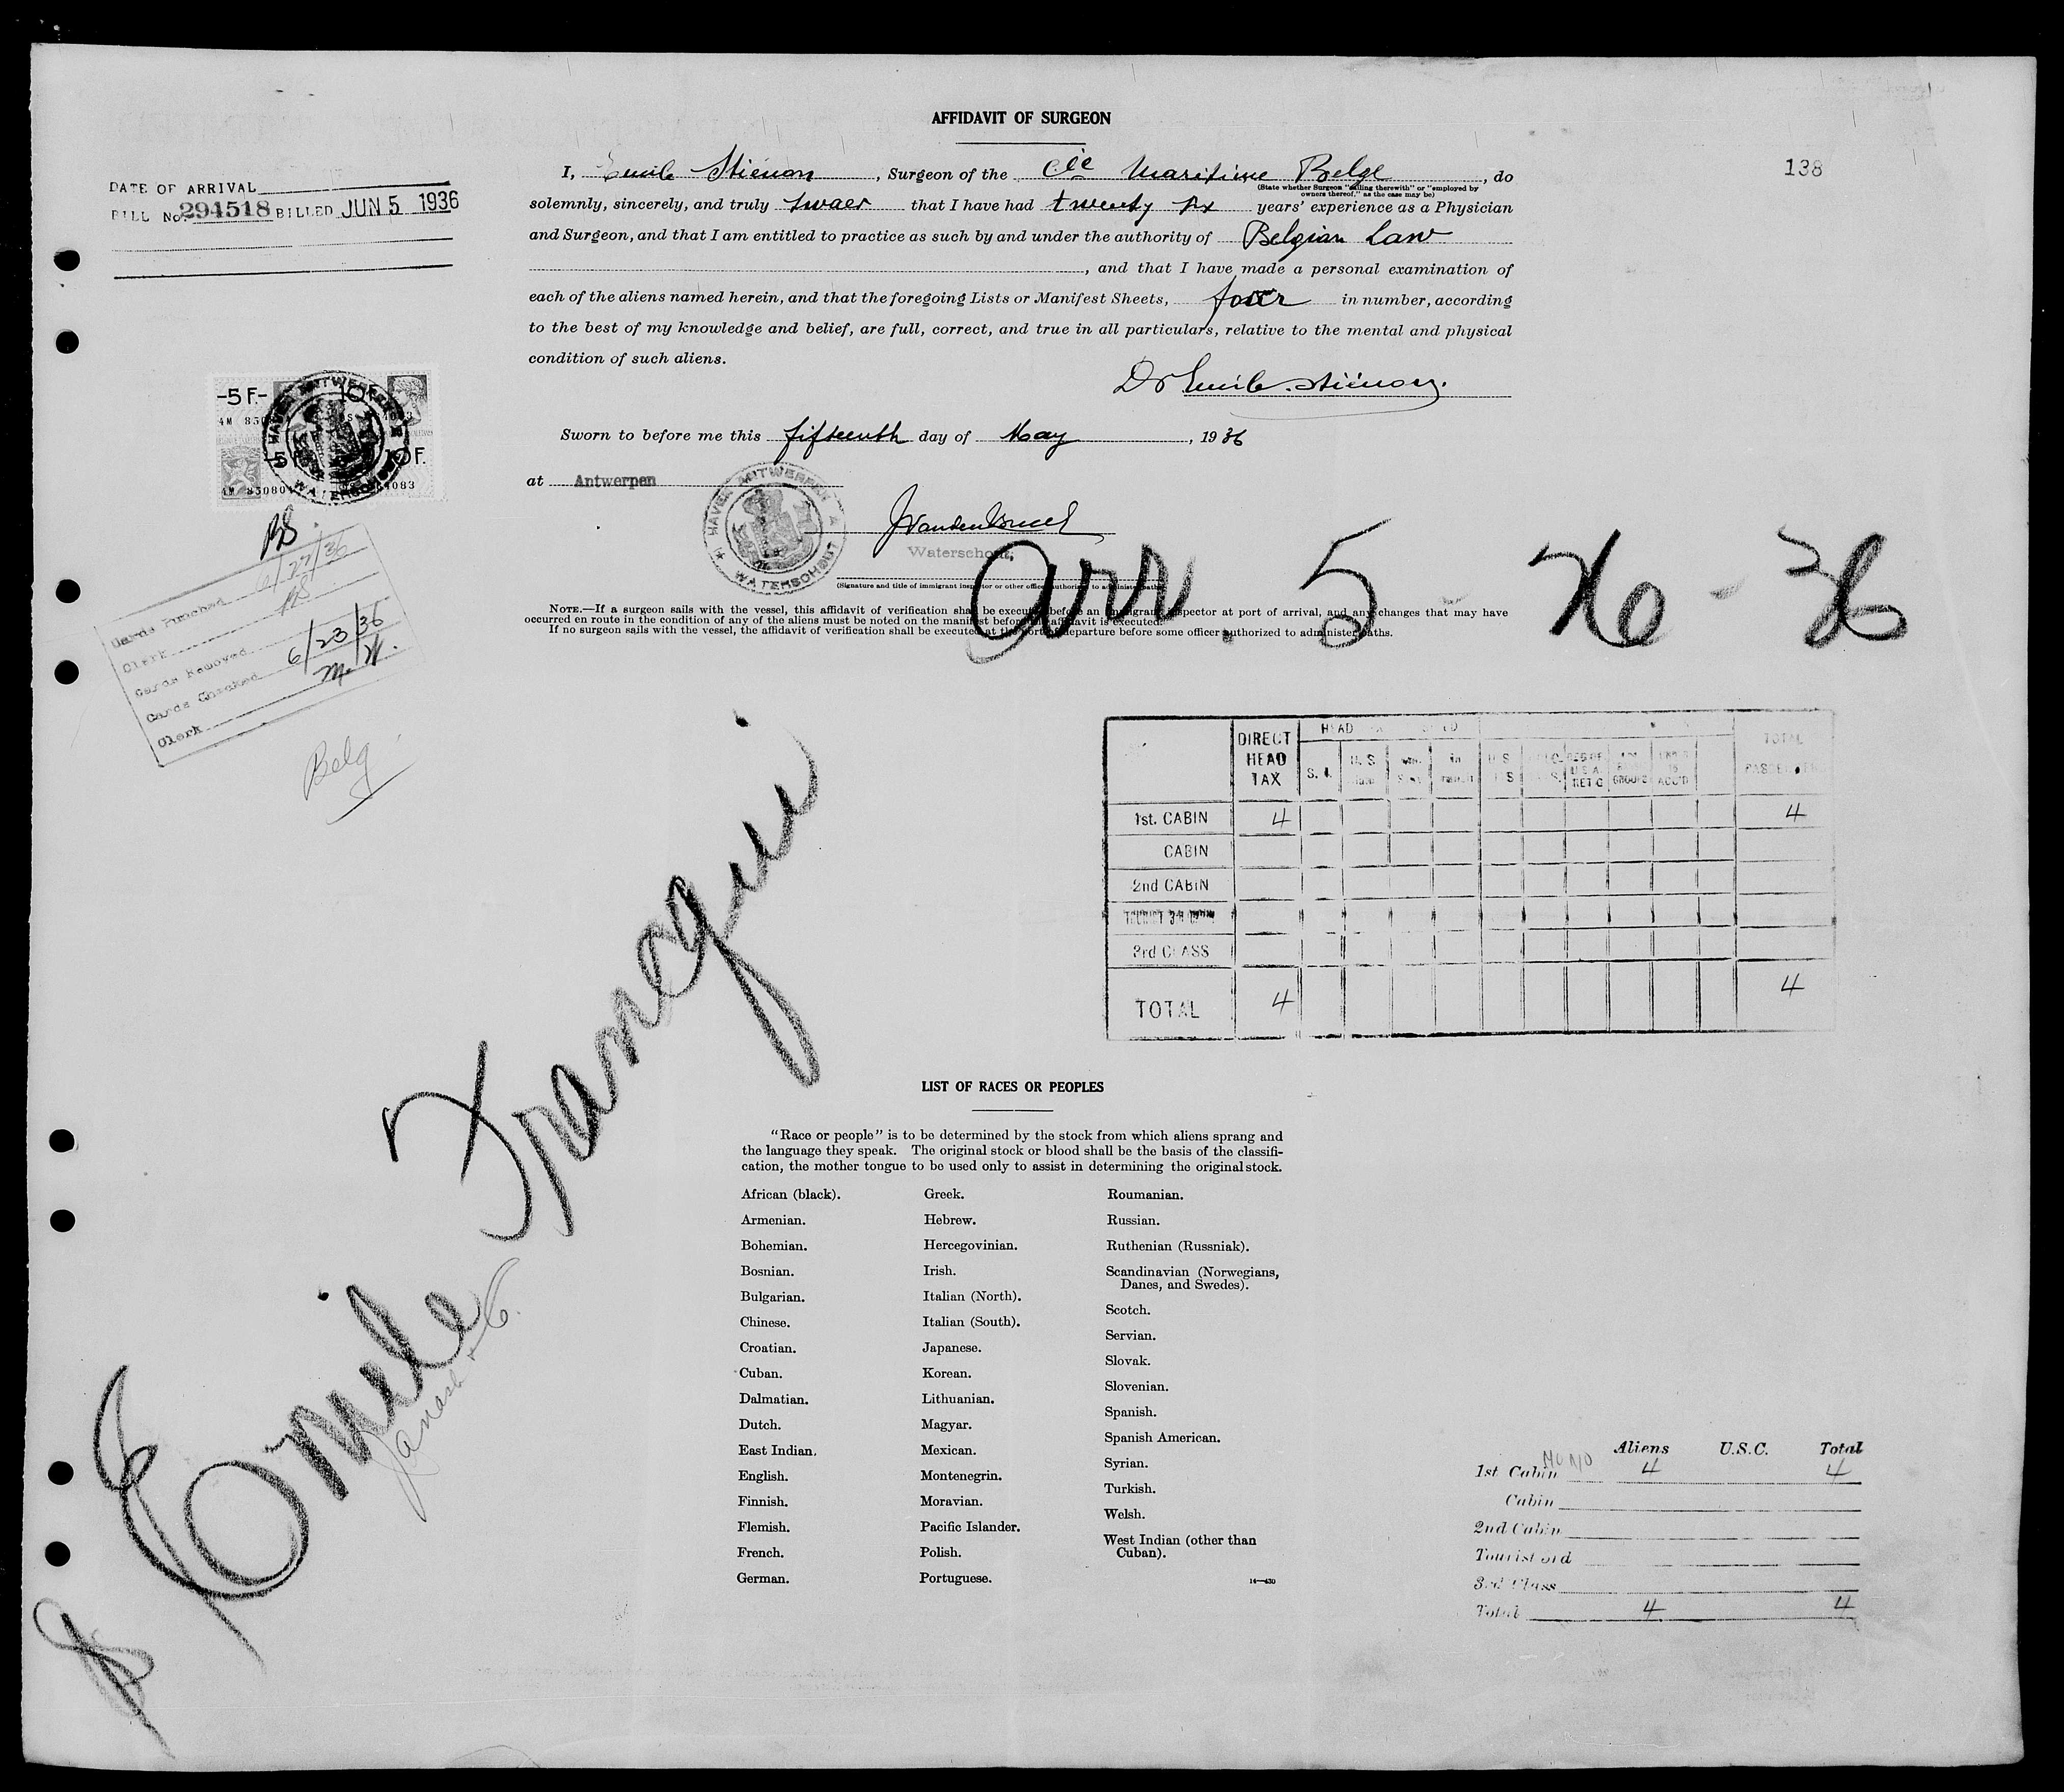 AFFIDAVIT OF SURGEON
138
DATE OF ARRIVAL
BILL No. 294518 BILLED JUN 5 1936
I, Emile Stienon, Surgeon of the Cie Maritime Belge, do
(State whether Surgeon "sailing therewith" or "employed by
owners thereof," as the case may be)
solemnly, sincerely, and truly swaer that I have had twenty six years' experience as a Physician
and Surgeon, and that I am entitled to practice as such by and under the authority of Belgian Law
, and that I have made a personal examination of
each of the aliens named herein, and that the foregoing Lists or Manifest Sheets, four in number, according
to the best of my knowledge and belief, are full, correct, and true in all particulars, relative to the mental and physical
condition of such aliens.
Dr Emile Stienon.
Sworn to before me this fifteenth day of May, 1936
at Antwerpen
HAVEN ANTWERPEN
WATERSCHOUT
Waterschout,
(Signature and title of immigrant inspector or other officer authorized to administer oaths)
-5 F.- 10
5 F. 10 F.
HAVEN ANTWERPEN
WATERSCHOUT
Arr. 5-26-36
NOTE.—If a surgeon sails with the vessel, this affidavit of verification shall be executed before an immigrant inspector at port of arrival, and any changes that may have
occurred en route in the condition of any of the aliens must be noted on the manifest before this affidavit is executed.
If no surgeon sails with the vessel, the affidavit of verification shall be executed at the port of departure before some officer authorized to administer oaths.
Cards Punched 6/27/36
Clerk
Cards Removed
Cards Checked 6/23/36
Clerk M.W.
Belg
DIRECT HEAD TAX
HEAD
TOTAL
S. I. U. S.
1st. CABIN 4 4
CABIN
2nd CABIN
TOURIST 3rd
3rd CLASS
TOTAL 4 4
Emile Francqui
LIST OF RACES OR PEOPLES
"Race or people" is to be determined by the stock from which aliens sprang and
the language they speak. The original stock or blood shall be the basis of the classifi-
cation, the mother tongue to be used only to assist in determining the original stock.
African (black).
Armenian.
Bohemian.
Bosnian.
Bulgarian.
Chinese.
Croatian.
Cuban.
Dalmatian.
Dutch.
East Indian.
English.
Finnish.
Flemish.
French.
German.
Greek.
Hebrew.
Hercegovinian.
Irish.
Italian (North).
Italian (South).
Japanese.
Korean.
Lithuanian.
Magyar.
Mexican.
Montenegrin.
Moravian.
Pacific Islander.
Polish.
Portuguese.
Roumanian.
Russian.
Ruthenian (Russniak).
Scandinavian (Norwegians,
Danes, and Swedes).
Scotch.
Servian.
Slovak.
Slovenian.
Spanish.
Spanish American.
Syrian.
Turkish.
Welsh.
West Indian (other than
Cuban).
14—430
Aliens U.S.C. Total
1st Cabin 4 4
Cabin
2nd Cabin
Tourist 3rd
3rd Class
Total 4 4